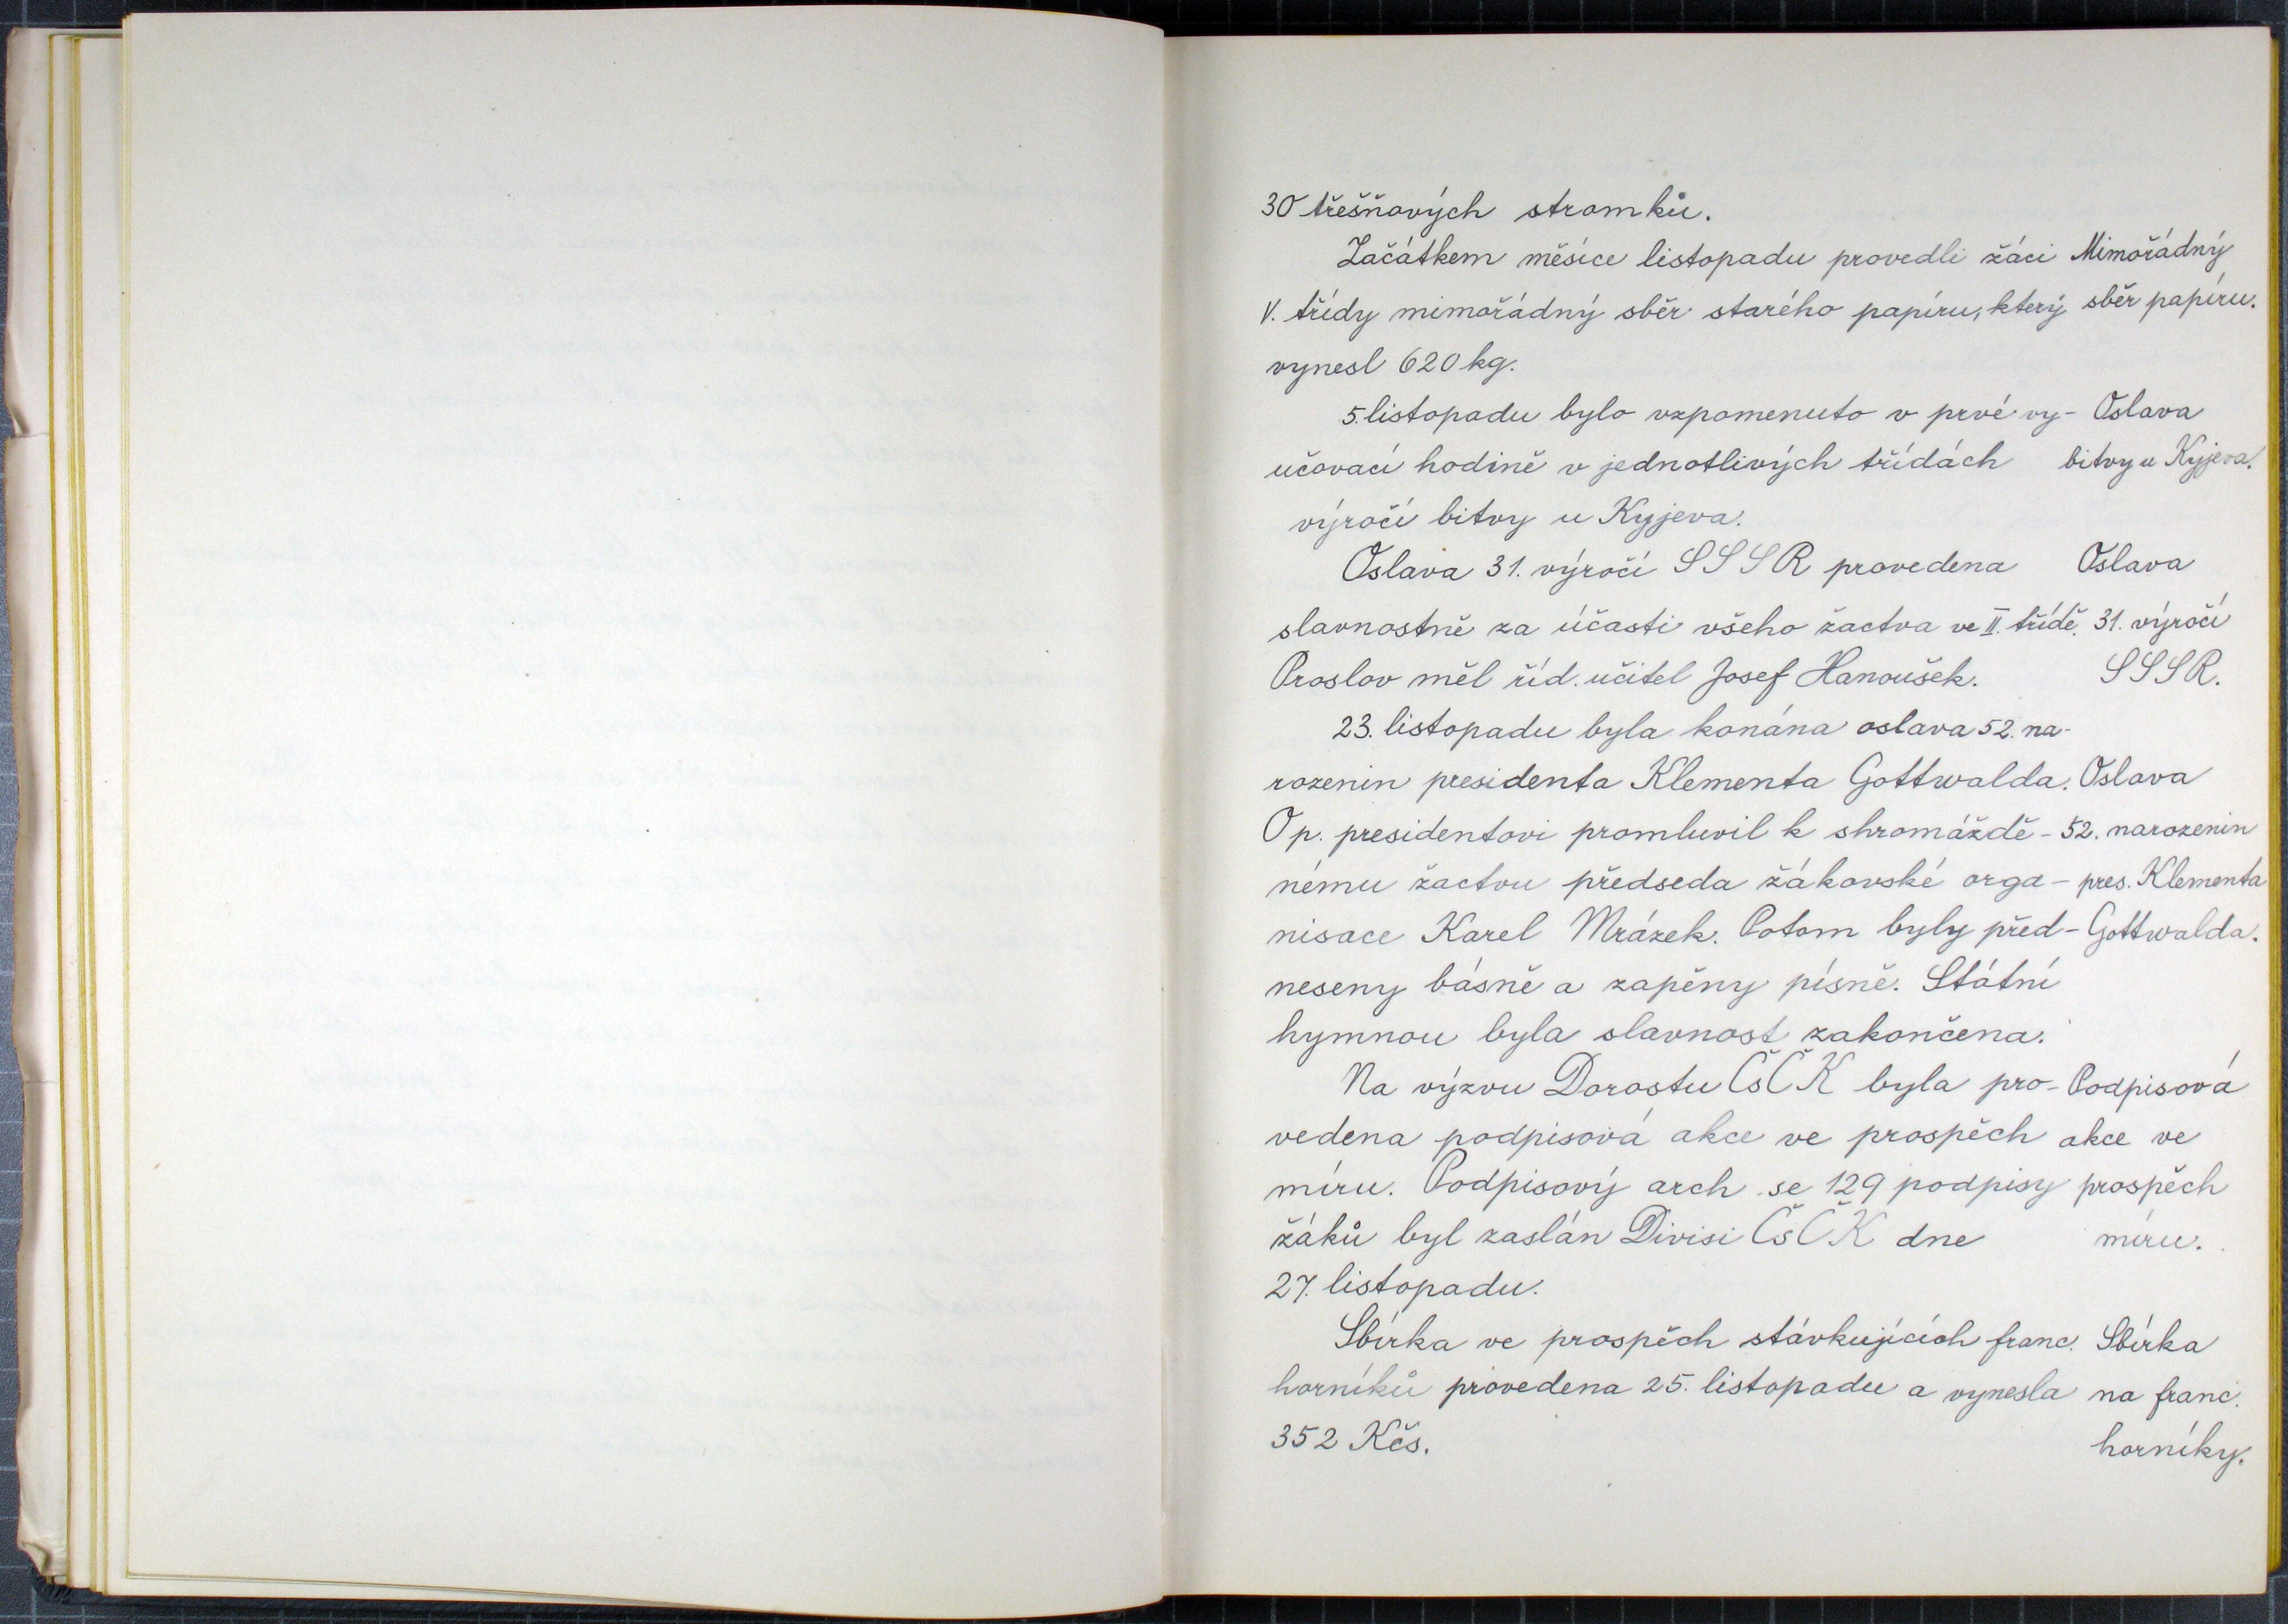 30 třešňových stromků.
Začátkem měsíce listopadu provedli žáci
V. třídy mimořádný sběr starého papíru, který
vynesl 620 kg.
5. listopadu bylo vzpomenuto v prvé vy-
učovací hodině v jednotlivých třídách
výročí bitvy u Kyjeva.
Oslava 31. výročí SSSR provedena
slavnostně za účasti všeho žactva ve II. třídě.
Proslov měl říd. učitel Josef Hanoušek.
23. listopadu byla konána oslava 52. na-
rozenin presidenta Klementa Gottwalda.
O p. presidentovi promluvil k shromáždě-
nému žactvu předseda žákovské orga-
nisace Karel Mrázek. Potom byly před-
neseny básně a zapěny písně. Státní
hymnou byla slavnost zakončena.
Na výzvu Dorostu ČsČK byla pro-
vedena podpisová akce ve prospěch
míru. Podpisový arch se 129 podpisy
žáků byl zaslán Divisi ČsČK dne
27. listopadu.
Sbírka ve prospěch stávkujících franc.
horníků provedena 25. listopadu a vynesla
352 Kčs.
Mimořádný
sběr papíru.
Oslava
bitvy u Kyjeva.
Oslava
31. výročí
SSSR.
Oslava
52. narozenin
pres. Klementa
Gottwalda.
Podpisová
akce ve
prospěch
míru.
Sbírka
na franc.
horníky.